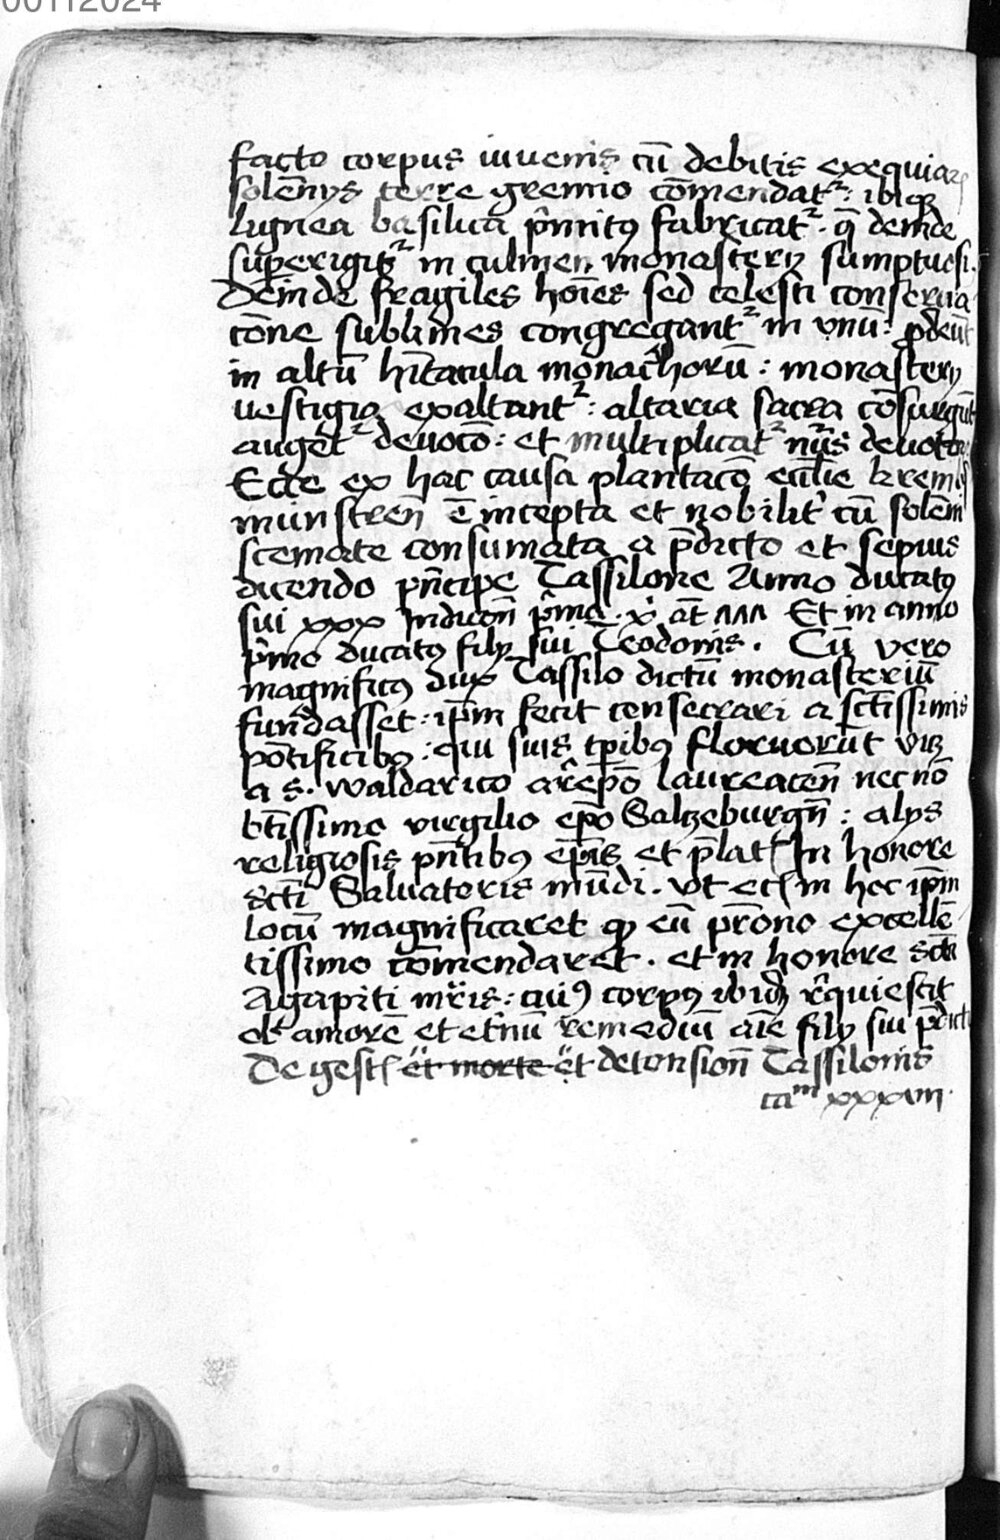 00112024
facto corpus iuvenis cū debitis exequiaꝝ
solēnys terre gremio cōmendatᷣ : ibiqꝫ
lignea basilica p̄mitꝰ fabricatᷣ . q̄ deinde
superigitᷣ in culmen monastery sumptuosi .
Deinde fragiles hoīes sed celesti conserua
cōne sublimes congregantᷣ in vnū : ꝓdeūt
in altū hītacula monachorū : monastery
uestigia exaltantᷣ : altaria sacra cōsurgūt
augetᷣ deuocō : et multiplicatᷣ nūs deuotoꝝ
Ecce ex hac causa plantacō eccl̄ie kremſ
münstren̄ ē incepta et nobilitᷣ cū solēni
scemate consumata a p̄dicto et sepius
dicendo pn̄cipe Tassilone Anno ducatꝰ
sui xxx Indicōn̄ p̄me . Et in anno
p̄mo ducatꝰ filij sui Teodonis . Cū vero
magnificꝰ dux Tassilo dictū monasteriū
fundasset : ip̄m fecit consecrari a sctīssimis
pōtificibꝰ : qui suis tp̄ibꝰ floruorūt vꝫ
a s . waldarico ar̄epō laureacen̄ nec nō
btīssimo virgilio ep̄o Salczeburgn̄ : alys
religiosis pn̄tibꝰ ep̄is et p̄latꝭ In honore
scti Saluatoris mūdi . vt ecꝭ in hoc ip̄m
locū magnificaret qꝫ eū pr̄ono excellē
tissimo cōmendaret . et in honore sctī
Agapiti mr̄is : cuiꝰ corpꝰ ibidē r̄quiescit
ob amorē et et̄nū remediū aīe filij sui p̄dicti
De gestꝭ et morte et detonsion̄ Tassilonis
caᵐ xxxviii .